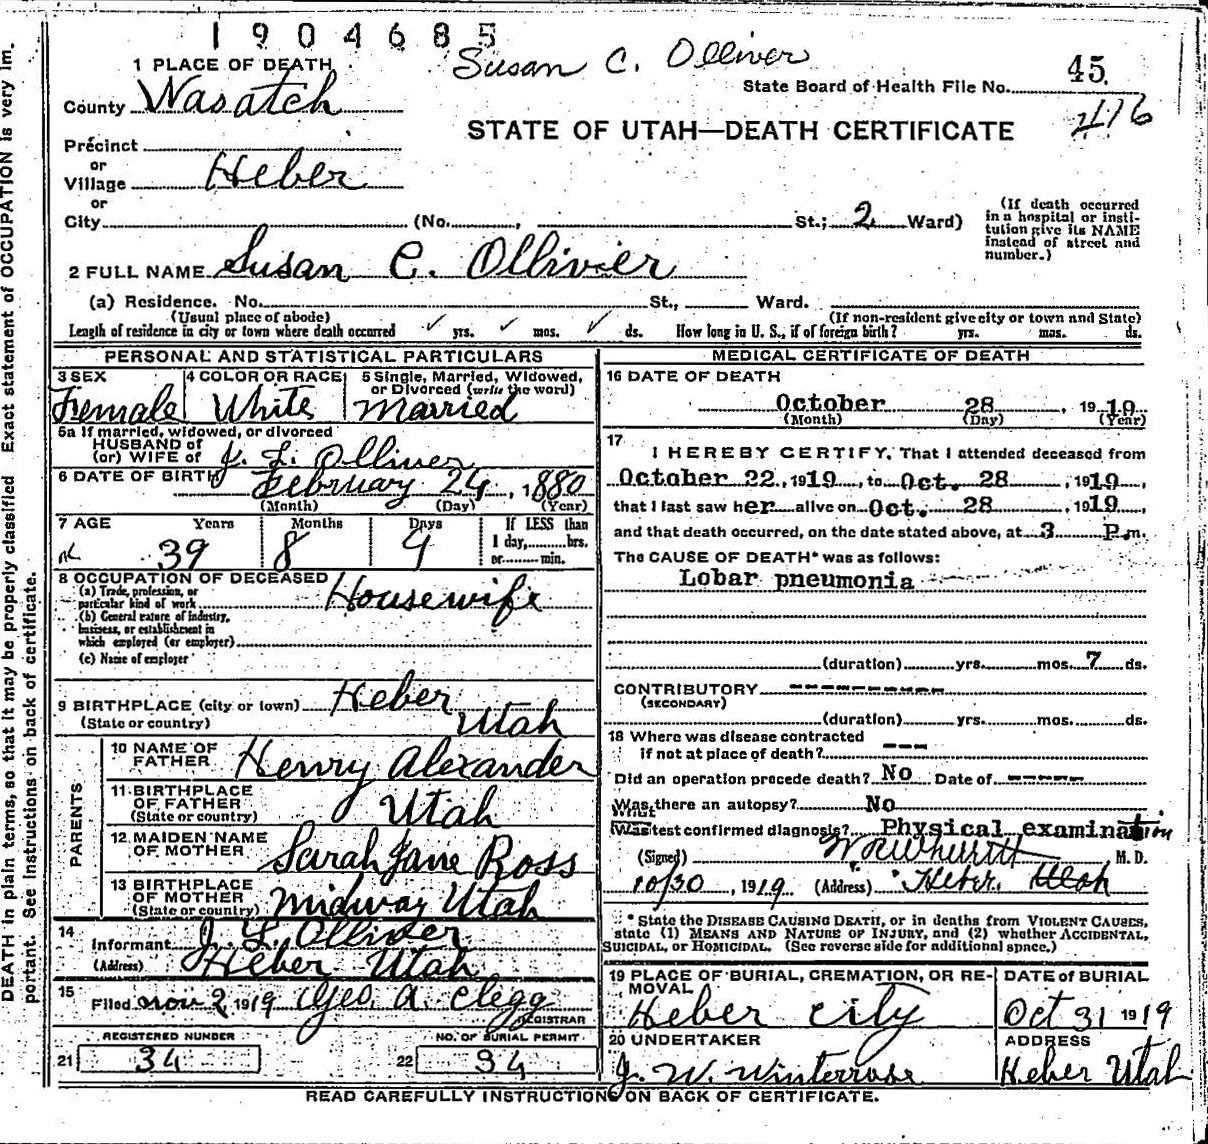 1904685
Susan C. Olliver
1 PLACE OF DEATH
State Board of Health File No. 45
County Wasatch
416
STATE OF UTAH—DEATH CERTIFICATE
Precinct
or
Village Heber
or
City (No. , St.; 2 Ward)
(If death occurred in a hospital or institution give its NAME instead of street and number.)
2 FULL NAME Susan C. Ollivier
(a) Residence. No. St., Ward.
(Usual place of abode) (If non-resident give city or town and State)
Length of residence in city or town where death occurred ✓ yrs. ✓ mos. ✓ ds. How long in U. S., if of foreign birth? yrs. mos. ds.
PERSONAL AND STATISTICAL PARTICULARS
3 SEX 4 COLOR OR RACE 5 Single, Married, Widowed,
or Divorced (write the word)
Female White Married
5a If married, widowed, or divorced
HUSBAND of
(or) WIFE of J. L. Olliver
6 DATE OF BIRTH February 24, 1880
(Month) (Day) (Year)
7 AGE Years Months Days If LESS than
39 8 4 1 day, hrs.
or min.
8 OCCUPATION OF DECEASED
(a) Trade, profession, or
particular kind of work Housewife
(b) General nature of industry,
business, or establishment in
which employed (or employer)
(c) Name of employer
9 BIRTHPLACE (city or town) Heber
(State or country) Utah
PARENTS
10 NAME OF
FATHER Henry Alexander
11 BIRTHPLACE
OF FATHER
(State or country) Utah
12 MAIDEN NAME
OF MOTHER Sarah Jane Ross
13 BIRTHPLACE
OF MOTHER
(State or country) Midway Utah
14
Informant J. L. Olliver
(Address) Heber Utah
15
Filed Nov 2 1919 Geo. A. Clegg
REGISTRAR
REGISTERED NUMBER NO. OF BURIAL PERMIT
21 34 22 34
MEDICAL CERTIFICATE OF DEATH
16 DATE OF DEATH
October 28, 1919
(Month) (Day) (Year)
17
I HEREBY CERTIFY, That I attended deceased from
October 22, 1919, to Oct. 28, 1919,
that I last saw her alive on Oct. 28, 1919,
and that death occurred, on the date stated above, at 3 P.m.
The CAUSE OF DEATH* was as follows:
Lobar pneumonia
(duration) yrs. mos. 7 ds.
CONTRIBUTORY ----------
(SECONDARY)
(duration) yrs. mos. ds.
18 Where was disease contracted
if not at place of death? ---
Did an operation precede death? No Date of -----
Was there an autopsy? No
What
test confirmed diagnosis? Physical examination
(Signed) M. D.
10/30, 1919 (Address) Heber, Utah
* State the DISEASE CAUSING DEATH, or in deaths from VIOLENT CAUSES,
state (1) MEANS AND NATURE OF INJURY, and (2) whether ACCIDENTAL,
SUICIDAL, or HOMICIDAL. (See reverse side for additional space.)
19 PLACE OF BURIAL, CREMATION, OR RE-
MOVAL
Heber City
DATE of BURIAL
Oct 31 1919
20 UNDERTAKER
J. W. Winterrose
ADDRESS
Heber Utah
READ CAREFULLY INSTRUCTIONS ON BACK OF CERTIFICATE.
DEATH in plain terms, so that it may be properly classified Exact statement of OCCUPATION is very im.
portant. See instructions on back of certificate.